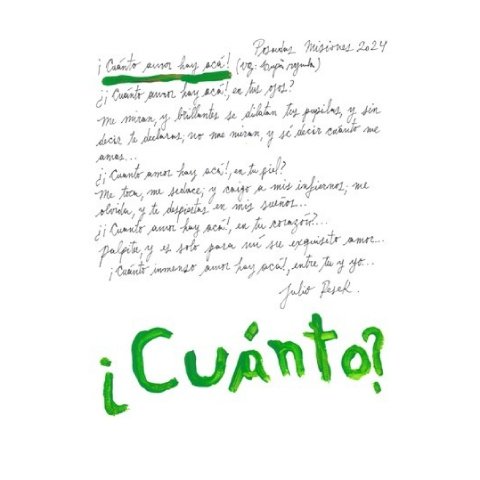 Posadas Misiones 2024
¡Cuánto amor hay acá! (vg:
¿¡Cuánto amor hay acá!, en tus ojos?
Me miran, y brillantes se dilatan tus pupilas, y sin
decir te declaras; no me miran, y sé decir cuánto me
amas...
¿¡Cuanto amor hay acá!, en tu piel?
Me toca, me seduce; y caigo a mis infiernos; me
olvida, y te despiertas en mis sueños...
¿¡Cuanto amor hay acá!, en tu corazón?...
palpita, y es solo para mí su exquisito amor...
¡Cuánto inmenso amor hay acá!, entre tu y yo...
Julio Pesek.
¿Cuánto?